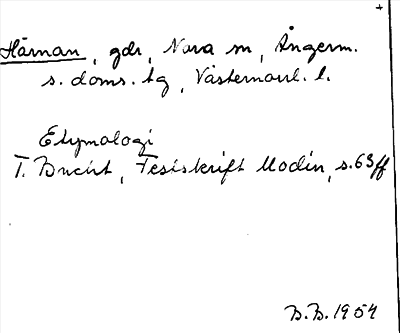 +
Härnan, gdr, Nora sn, Ångerm.
s. doms. hg, Västernorrl. l.
Etymologi
T. Bucht, Festskrift Modin, s. 63 ff
B.B. 1954